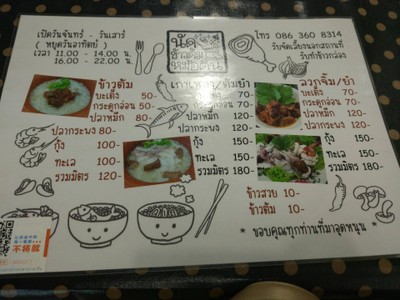 เปิดวันจันทร์ - วันเสาร์
( หยุดวันอาทิตย์ )
เวลา 11.00 - 14.00 น.
16.00 - 22.00 น.
นัด
โทร 086 360 8314
รับจัดเลี้ยงนอกสถานที่
รับทำข้าวกล่อง
ข้าวต้ม
บะเต็ง 50-
กระดูกอ่อน 50-
ปลาหมึก 80-
ปลากระพง 80-
กุ้ง 90-
ทะเล 100-
รวมมิตร 120-
เกาเหลา/ต้มยำ
บะเต็ง 70-
กระดูกอ่อน 70-
ปลาหมึก 120-
ปลากระพง 120-
กุ้ง 150-
ทะเล 150-
รวมมิตร 180-
ลวกจิ้ม/ยำ
บะเต็ง 70-
กระดูกอ่อน 70-
ปลาหมึก 120-
ปลากระพง 120-
กุ้ง 150-
ทะเล 150-
รวมมิตร 180-
ข้าวสวย 10-
ข้าวต้ม 10-
* ขอบคุณทุกท่านที่มาอุดหนุน *
不将就